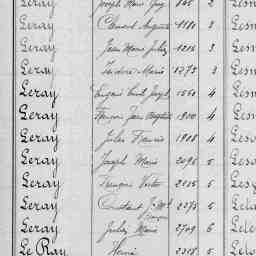 Leray Joseph Marie 2 Les
Leray Clément Auguste 3 Les
Leray Jean Marie Julien 1216 3 Les
Leray Isidore Marie 1273 3 Les
Leray Eugène Louis Joseph 1550 4 Les
Leray François Jean Baptiste 1900 4 Les
Leray Jules Francis 1908 4 Les
Leray Joseph Marie 2096 5 Les
Leray François Victor 2105 5 Les
Leray Constant 2275 5
Leray Julien Marie 2709 6
Le Ray Henri 2318 5